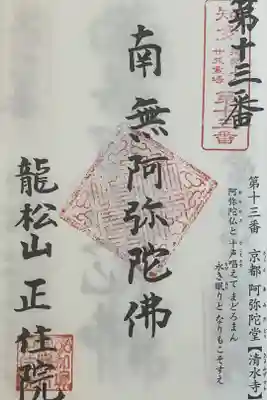 第十三番
南無阿弥陀佛
龍松山 正住院
第十三番 京都 阿弥陀堂【清水寺】
阿弥陀仏と 十声唱えてまどろまん
永き眠りとなりもこそすえ